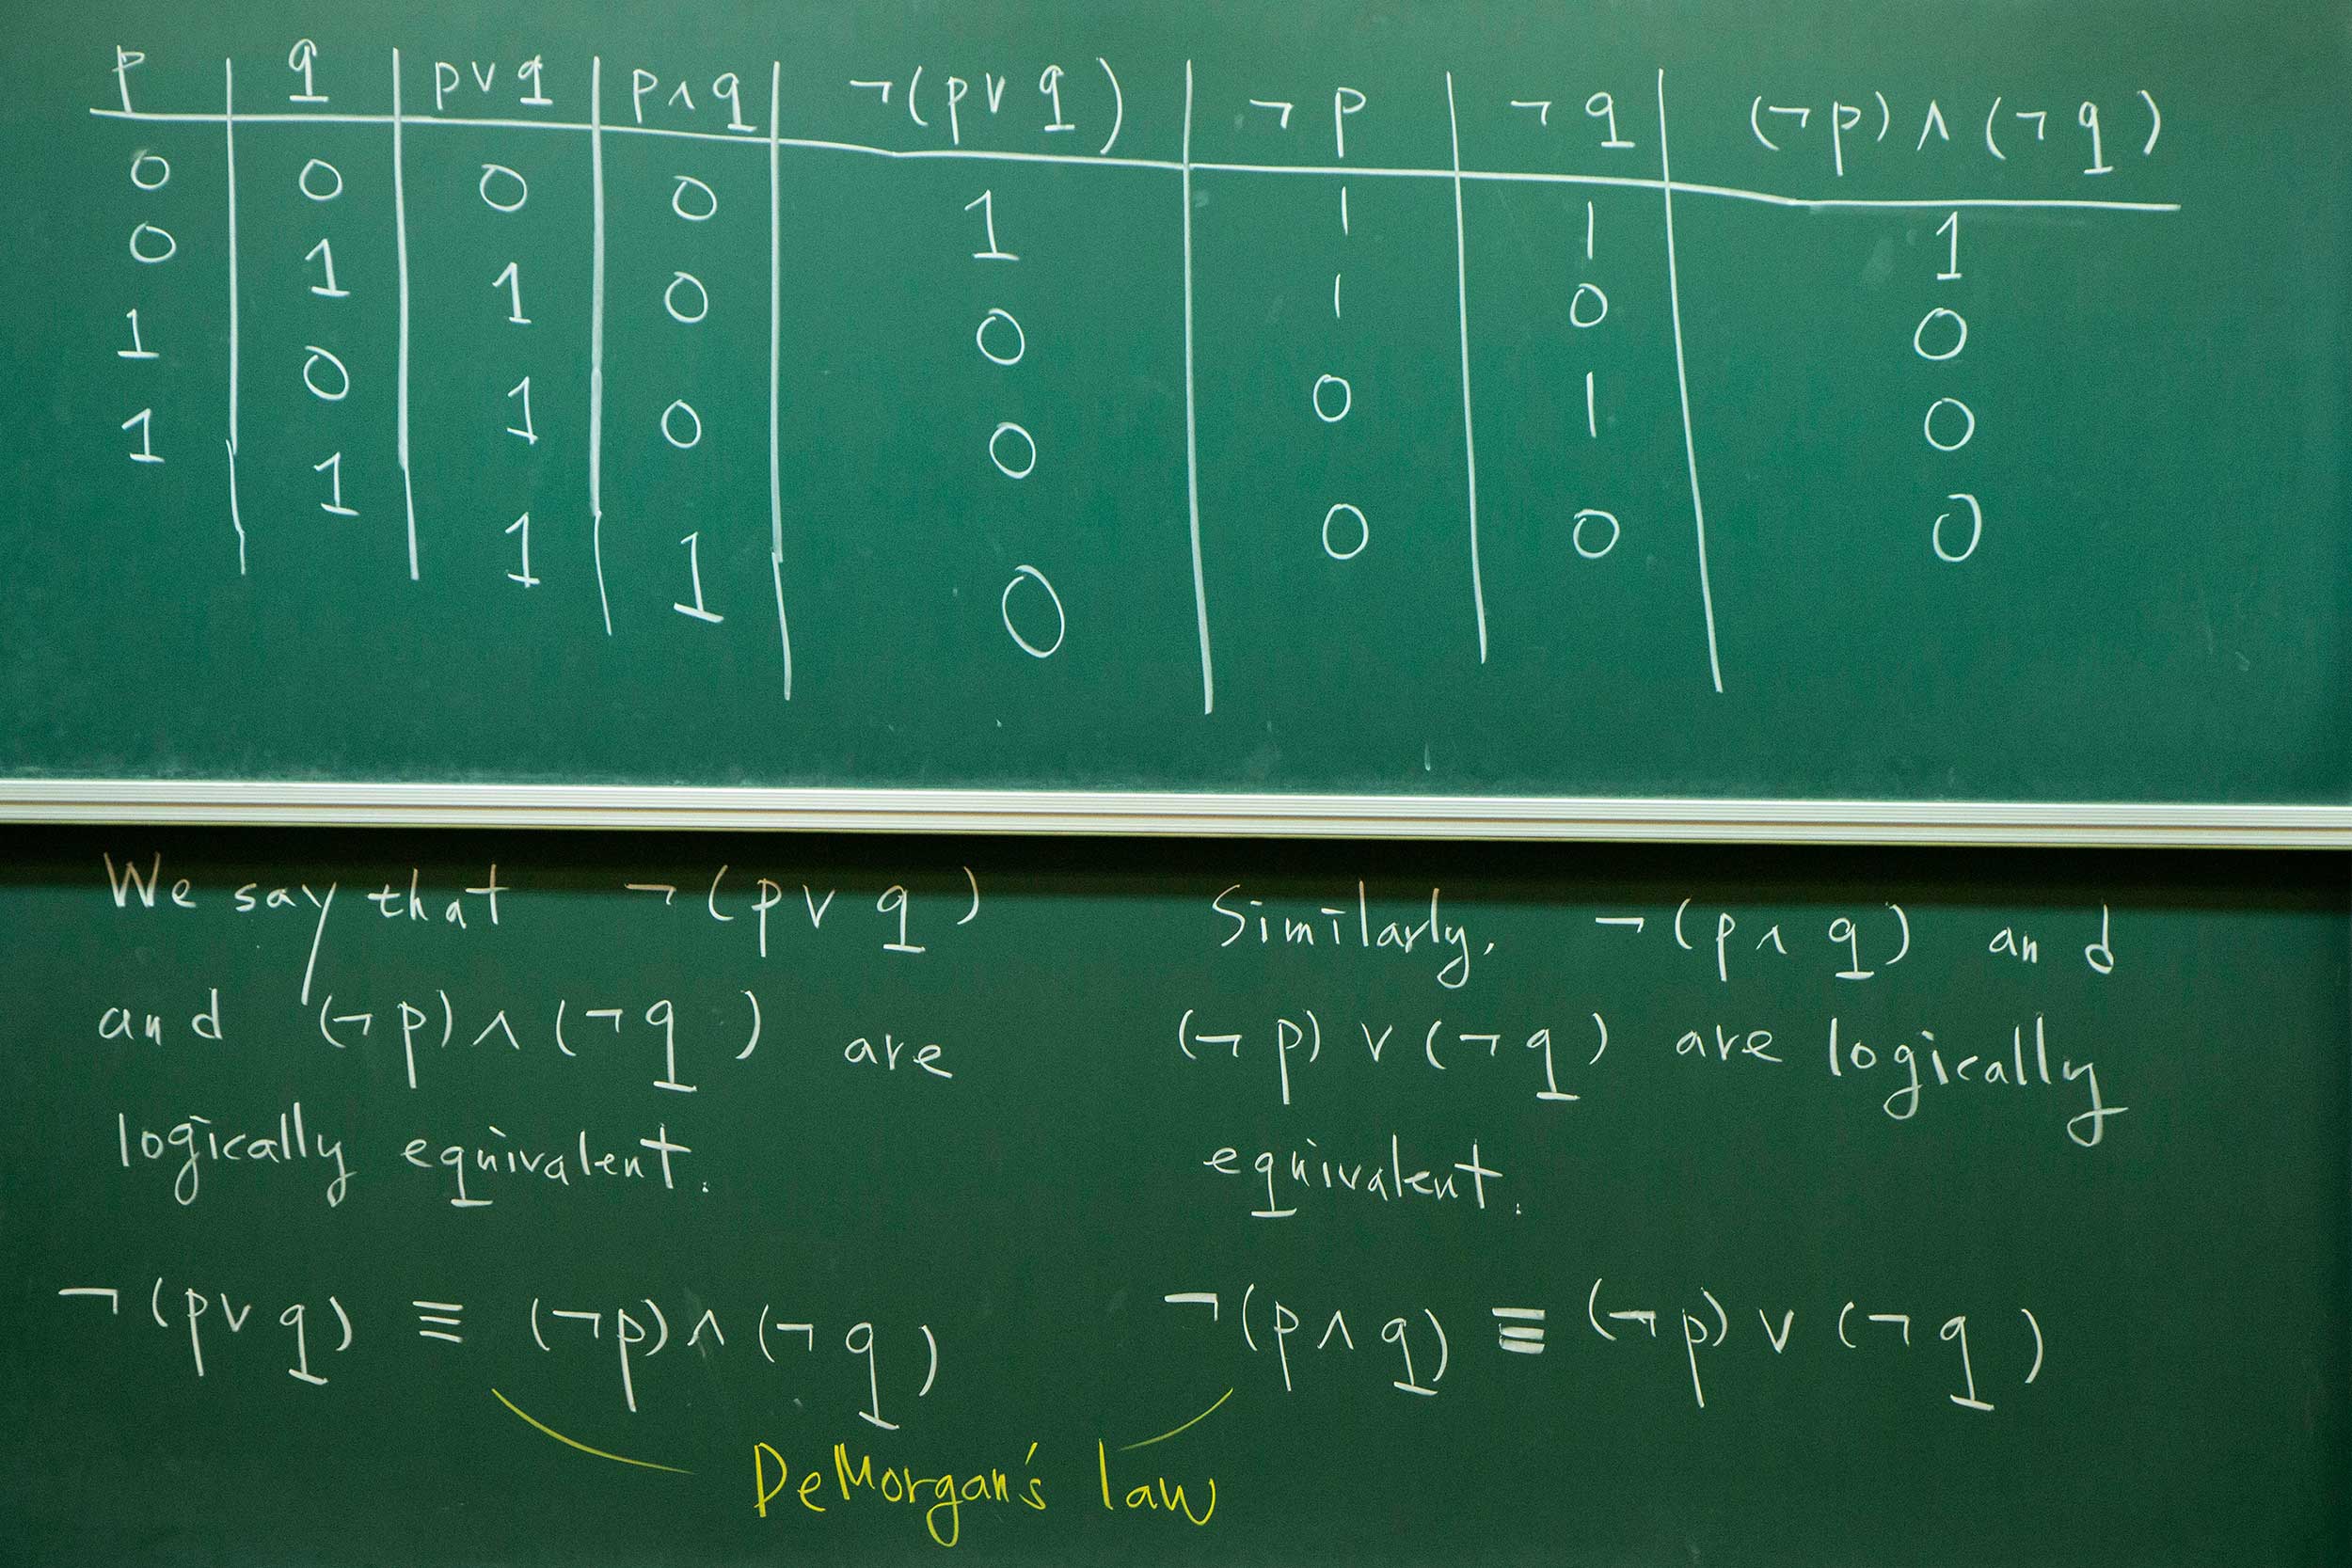 p q p∨q p∧q ¬(p∨q) ¬p ¬q (¬p)∧(¬q)
0 0 0 0 1 1 1 1
0 1 1 0 0 1 0 0
1 0 1 0 0 0 1 0
1 1 1 1 0 0 0 0
We say that ¬(p∨q)
and (¬p)∧(¬q) are
logically equivalent.
¬(p∨q) ≡ (¬p)∧(¬q)
Similarly, ¬(p∧q) and
(¬p)∨(¬q) are logically
equivalent.
¬(p∧q) ≡ (¬p)∨(¬q)
DeMorgan's law